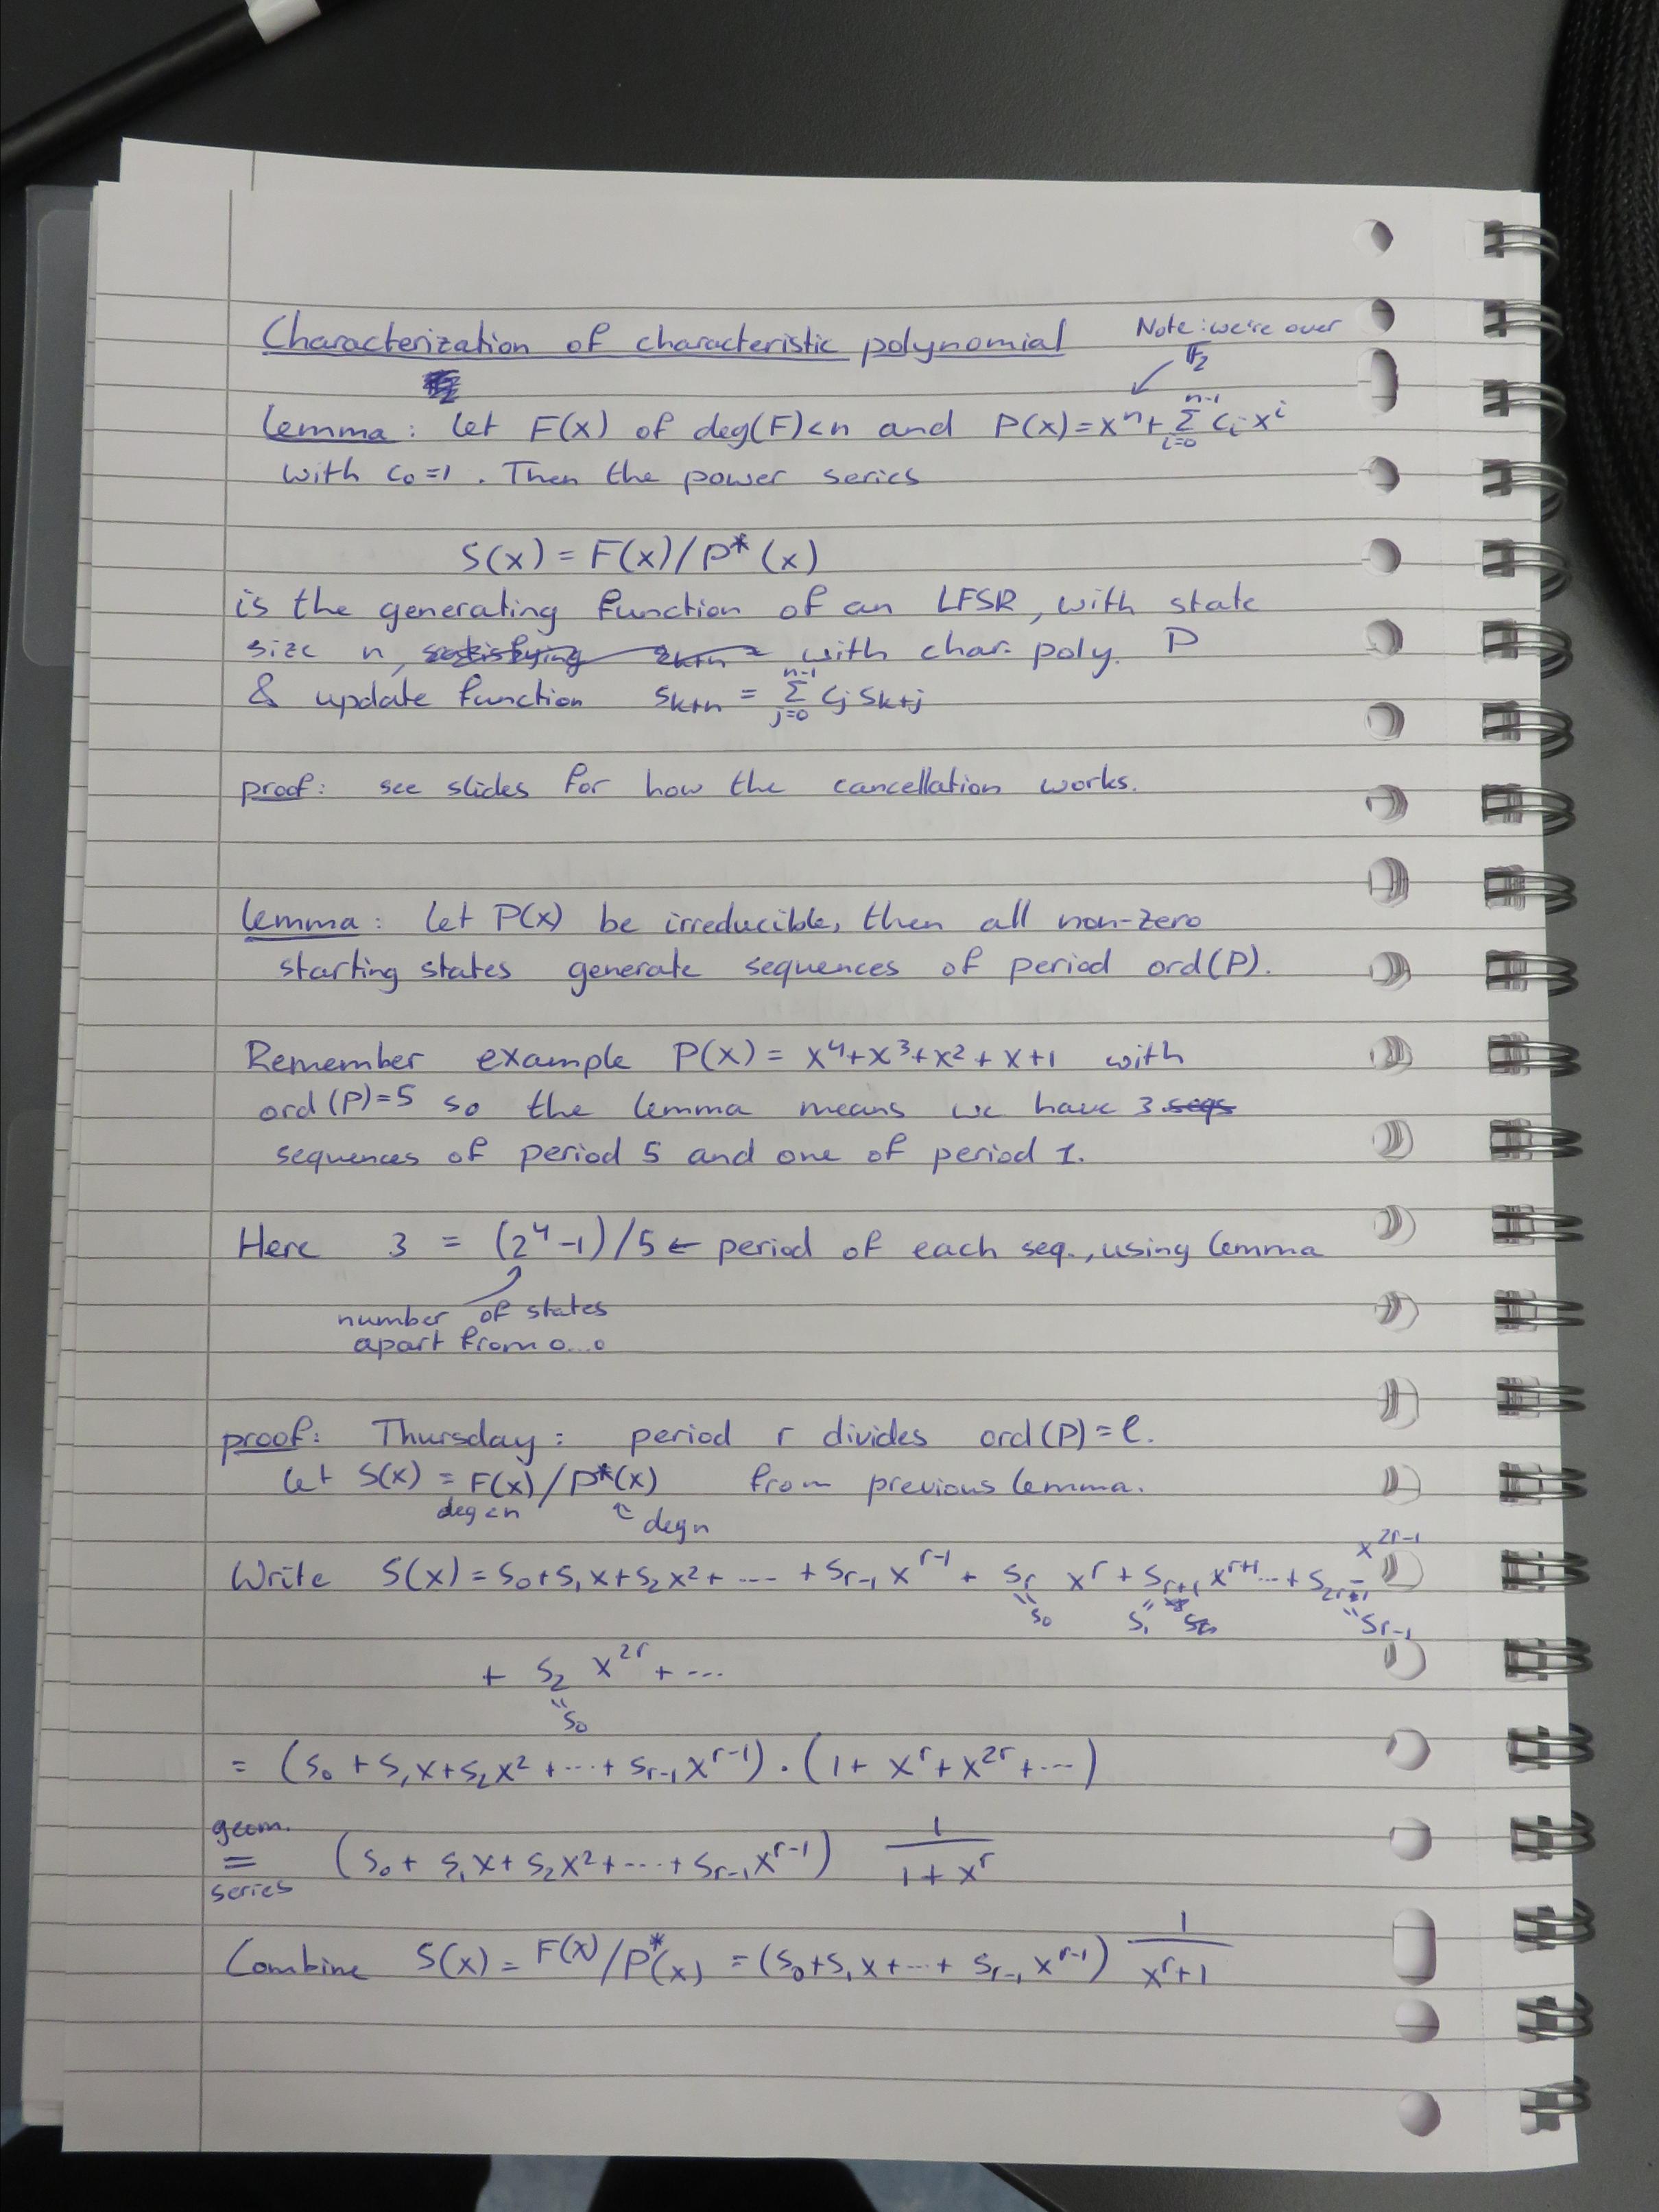 Characterization of characteristic polynomial
Note: we're over
F₂
Lemma: Let F(x) of deg(F)<n and P(x)=xⁿ+ Σ_{i=0}^{n-1} cᵢ xⁱ
with c₀=1. Then the power series
S(x) = F(x)/P*(x)
is the generating function of an LFSR, with state
size n, with char. poly. P
& update function s_{k+n} = Σ_{j=0}^{n-1} c_j s_{k+j}
proof: see slides for how the cancellation works.
Lemma: Let P(x) be irreducible, then all non-zero
starting states generate sequences of period ord(P).
Remember example P(x) = x⁴+x³+x²+x+1 with
ord(P)=5 so the lemma means we have 3 seqs
sequences of period 5 and one of period 1.
Here 3 = (2⁴-1)/5 ← period of each seq., using lemma
number of states
apart from 0...0
proof: Thursday: period r divides ord(P)=l.
Let S(x) = F(x)/P*(x) from previous lemma.
deg<n deg n
Write S(x) = s₀+s₁x+s₂x²+ ---- + s_{r-1} x^{r-1} + s_r x^r + s_{r+1} x^{r+1}...+ s_{2r-1} x^{2r-1}
"s₀ s₁" "s_{r-1}
+ s₂ x^{2r} + ...
"s₀
= (s₀ + s₁x+s₂x² +...+ s_{r-1}x^{r-1}) . (1+ x^r+x^{2r}+...)
geom.
= (s₀+ s₁x+ s₂x²+...+ s_{r-1}x^{r-1}) 1/(1+x^r)
series
Combine S(x) = F(x)/P*(x) = (s₀+s₁x+...+ s_{r-1} x^{r-1}) 1/(x^r+1)